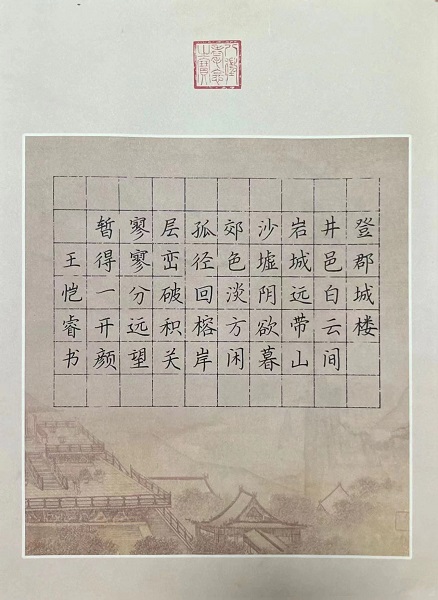 登郡城楼
井邑白云间
岩城远带山
沙墟阴欲暮
郊色淡方闲
孤径回榕岸
层峦破积关
寥寥分远望
暂得一开颜
王恺睿书